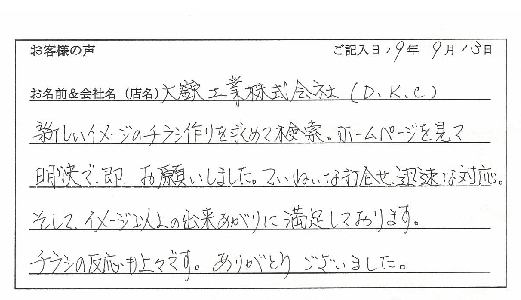 お客様の声 ご記入日 19年 9月 13日
お名前&会社名(店名) 大 工業株式会社 (D.K.C)
新しいイメージのチラシ作りを求めて検索。ホームページを見て
明快で即 お願いしました。ていねいな打合せ、迅速な対応。
そして、イメージ以上の出来あがりに満足しております。
チラシの反応も上々です。ありがとうございました。